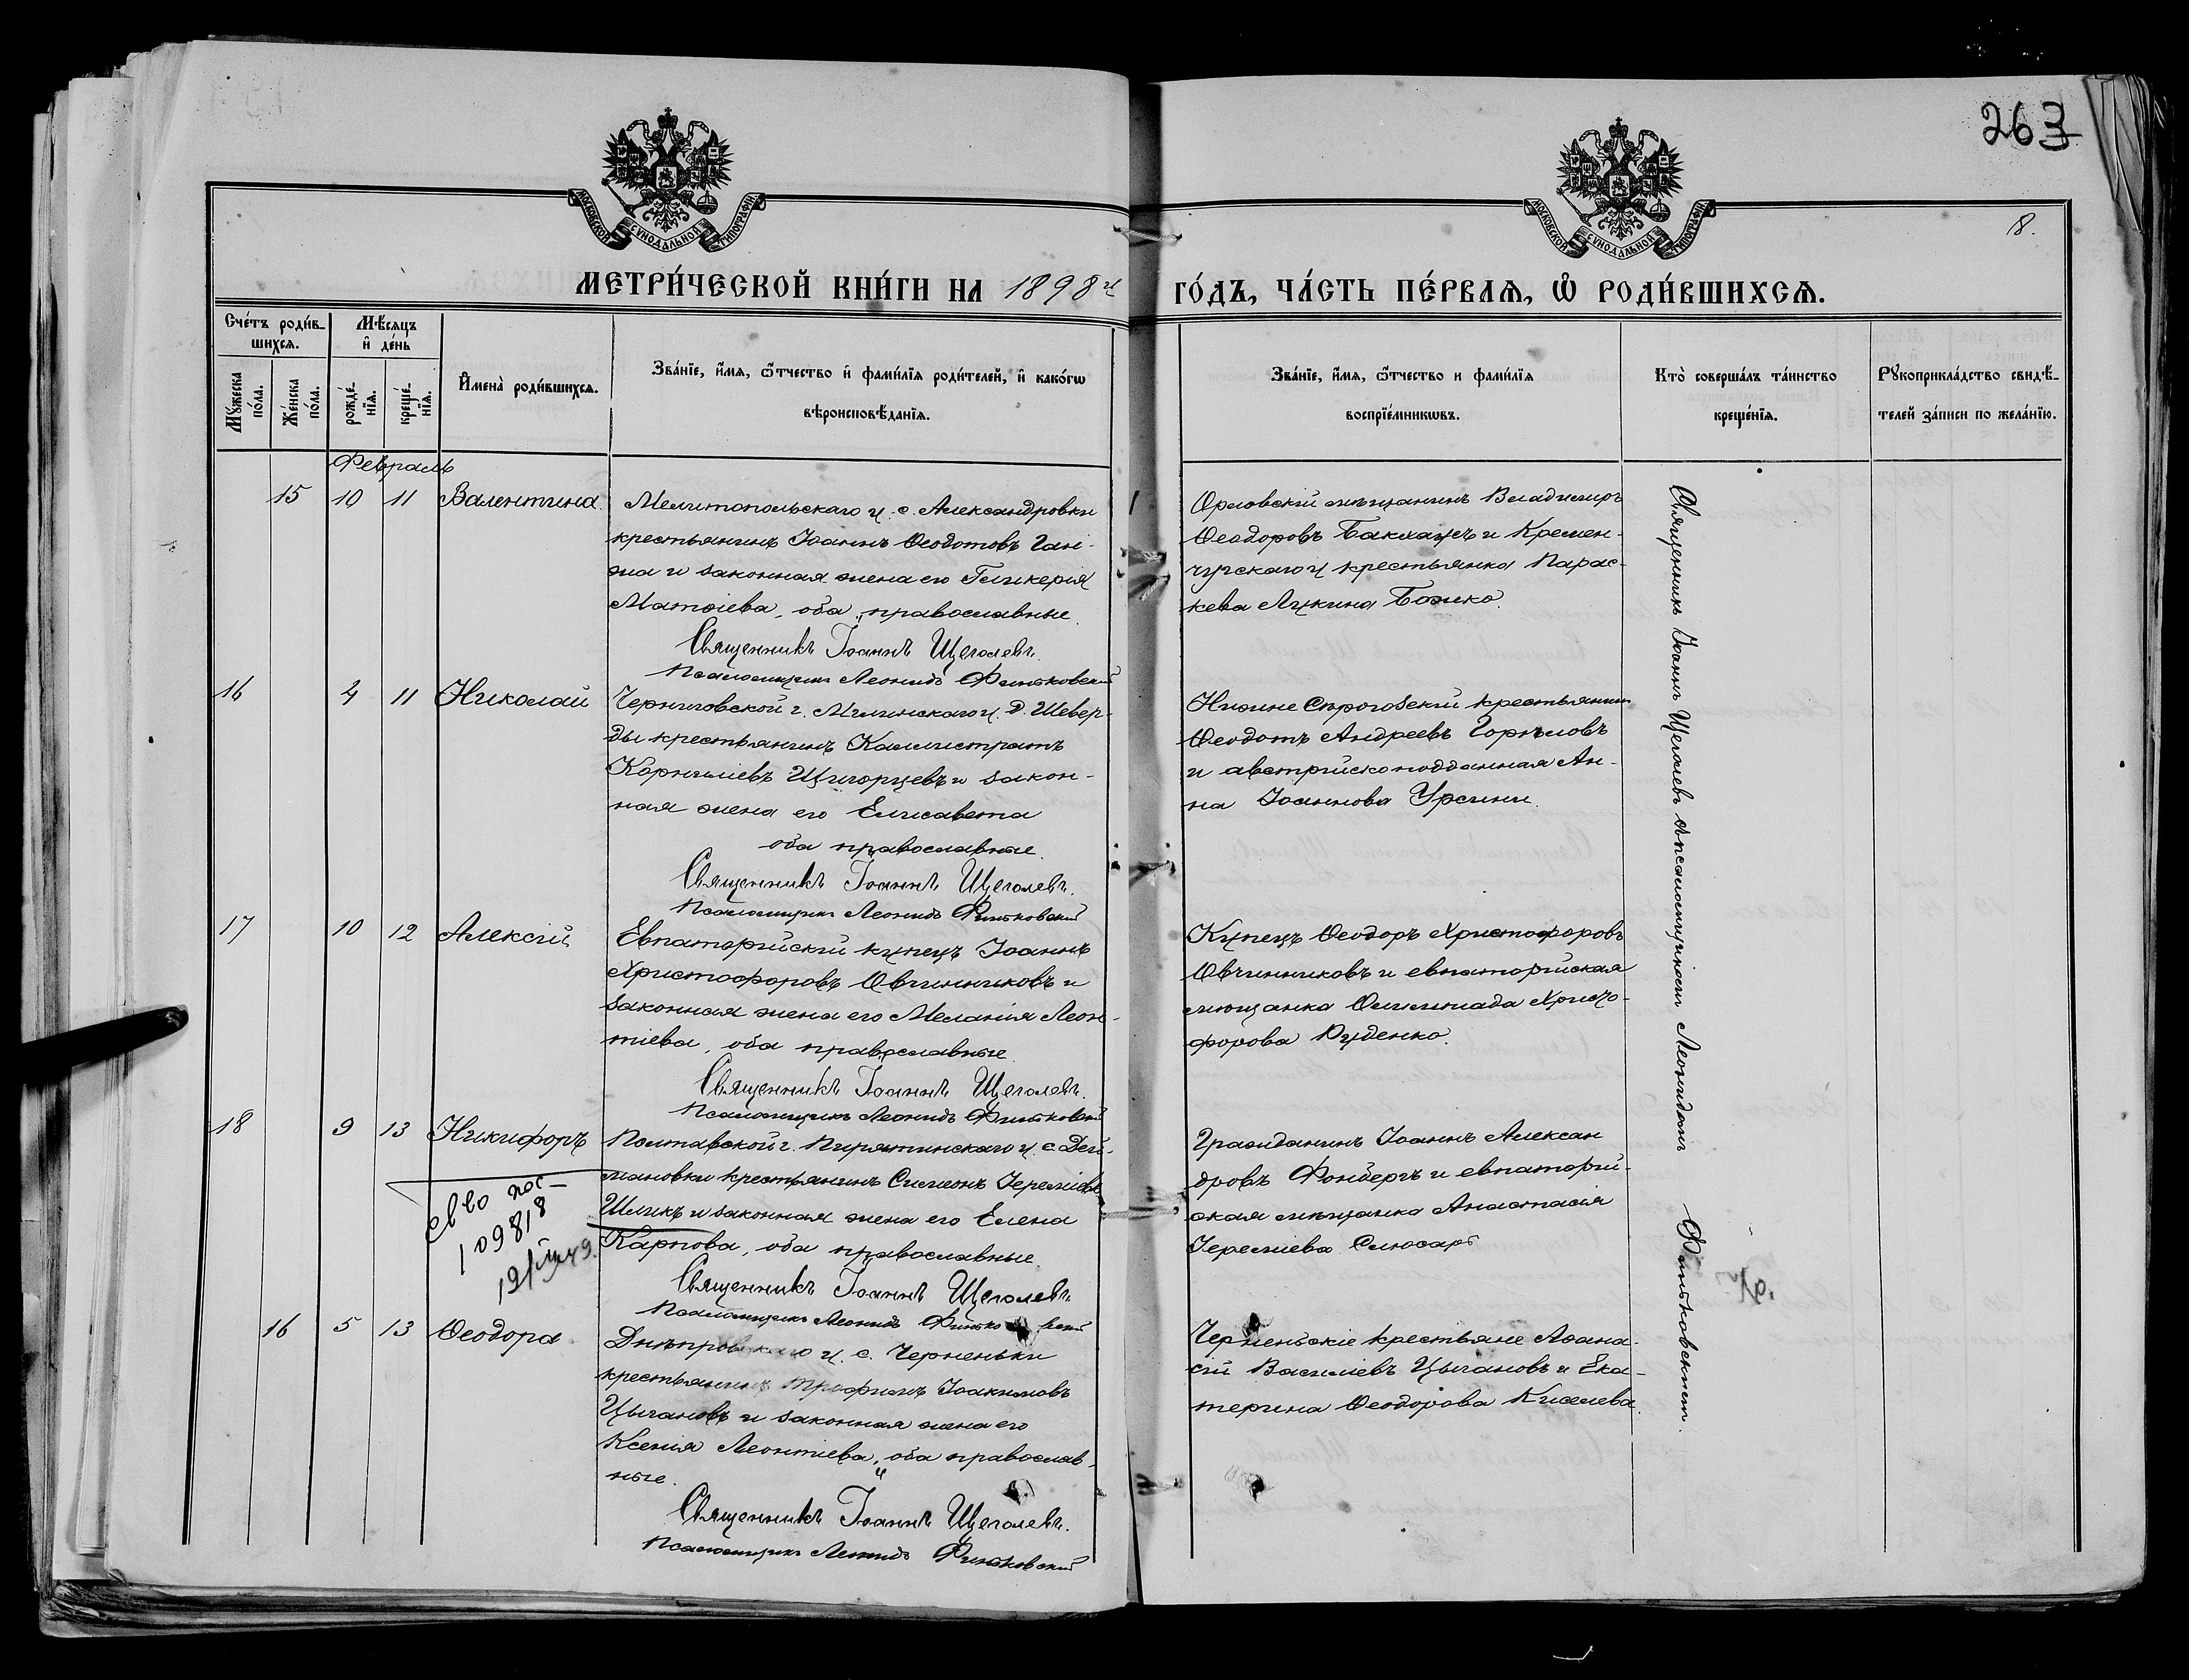 263
8.
МОСКОВСКОЙ СУНОДАЛЬНОЙ ТИПОГРАФІИ
МОСКОВСКОЙ СУНОДАЛЬНОЙ ТИПОГРАФІИ
МЕТРИ́ЧЕСКОЙ КНИ́ГИ НА 1898й ГО́ДЪ, ЧА́СТЬ ПЕ́РВАѦ, Ѡ РОДИ́ВШИХСѦ.
Сче́тъ роди́в-
шихсѧ.
Мꙋ́жеска по́ла.
Же́нска по́ла.
Мѣ́сѧцъ
и де́нь
рожде́-
нїѧ.
креще́-
нїѧ.
И҆мена̀ роди́вшихсѧ.
Зва́нїе, и҆́мѧ, ѻ҆́тчество и҆ фами́лїѧ роди́телей, и҆ како́гѡ
вѣроисповѣ́данїѧ.
Зва́нїе, и҆́мѧ, ѻ҆́тчество и фами́лїѧ
воспрїе́мникѡвъ.
Кто̀ соверша́лъ та́инство
креще́нїѧ.
Рꙋкоприкла́дство свидѣ́-
телей за́писи по жела́нїю.
Февраль
15 10 11 Валентина.
Мелитопольскаго у. с. Александровки
крестьянинъ Іоаннъ Ѳеодотовъ Ган-
жа и законная жена его Гликерія
Матѳіева, оба православные.
Священникъ Іоаннъ Щеголевъ.
Псаломщикъ Леонидъ Финьковскій
Орловскій мѣщанинъ Владимиръ
Ѳеодоровъ Баклащъ и Кремен-
чугскаго у крестьянка Парас-
кева Лукина Божко.
16 4 11 Николай
Черниговской г. Мглинскаго у. д. Шевер-
ды крестьянинъ Каллистратъ
Корниліевъ и закон-
ная жена его Елисавета
оба православные.
Священникъ Іоаннъ Щеголевъ.
Псаломщикъ Леонидъ Финьковскій
крестьянинъ
Ѳеодотъ Андреевъ Горѣловъ
и австрійскоподданная Ан-
на Іоаннова Урсини.
17 10 12 Алексій
Евпаторійскій купецъ Іоаннъ
Христофоровъ Овчинниковъ и
законная жена его Меланія Леон-
тіева, оба православные.
Священникъ Іоаннъ Щеголевъ.
Псаломщикъ Леонидъ Финьковскій
Купецъ Ѳеодоръ Христофоровъ
Овчинниковъ и евпаторійская
мѣщанка Олимпіада Христо-
форова Руденко.
18 9 13 Никифоръ
Полтавской г. Пирятинскаго у. с. Дей-
мановки крестьянинъ Симеонъ Іереміевъ
Шликъ и законная жена его Елена
Карпова, оба православные.
Священникъ Іоаннъ Щеголевъ.
Псаломщикъ Леонидъ Финьковскій
109818
Гражданинъ Іоаннъ Алексан
дровъ Фонбергъ и евпаторій-
ская мѣщанка Анастасія
Іереміева Слюсарь
16 5 13 Ѳеодора
Днѣпровскаго у. с. Черненьки
крестьянинъ Трофимъ Іоакимовъ
Цыгановъ и законная жена его
Ксенія Леонтіева, оба православ-
ные.
Священникъ Іоаннъ Щеголевъ.
Псаломщикъ Леонидъ Финьковскій
Черненьскіе крестьяне Аѳана-
сій Василіевъ Цыгановъ и Ека-
терина Ѳеодорова Киселева.
Священникъ Іоаннъ Щеголевъ съ псаломщикомъ Леонидомъ Финьковскимъ.